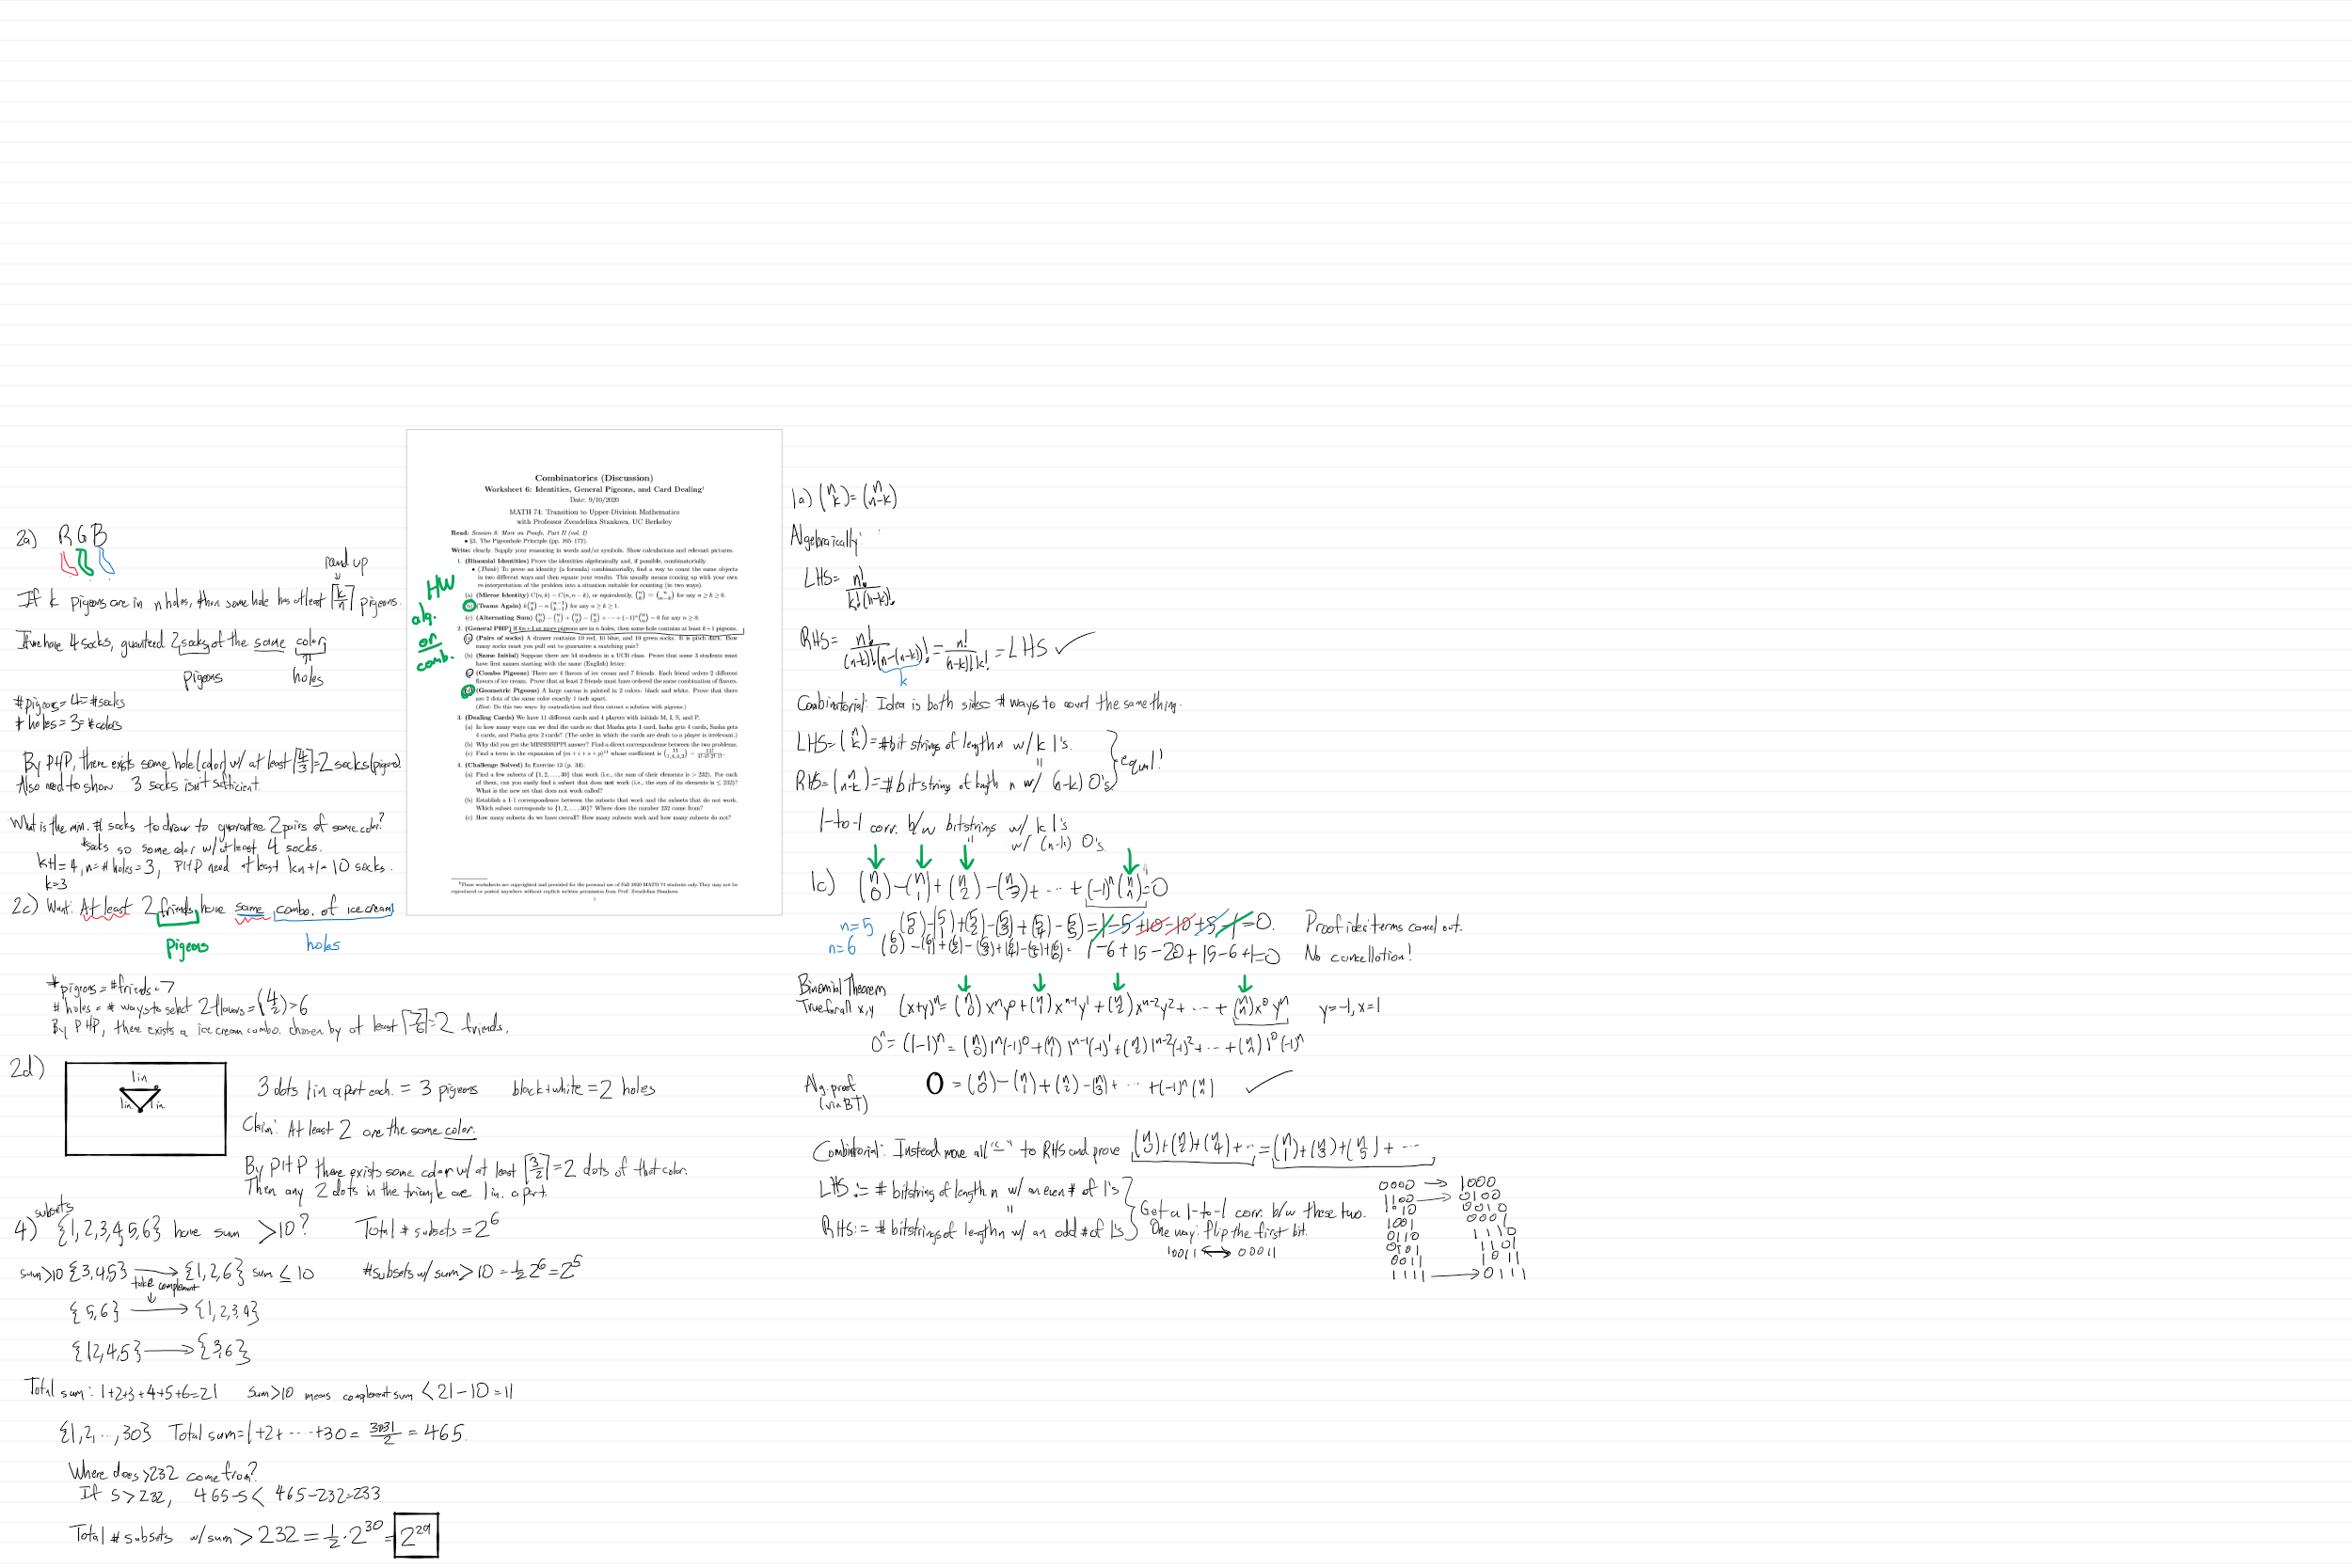 Combinatorics (Discussion)
Worksheet 6: Identities, General Pigeons, and Card Dealing¹
Date: 9/10/2020
MATH 74: Transition to Upper-Division Mathematics
with Professor Zvezdelina Stankova, UC Berkeley
Read: Session 8: More on Proofs, Part II (vol. I)
• §3. The Pigeonhole Principle (pp. 165–172).
Write: clearly. Supply your reasoning in words and/or symbols. Show calculations and relevant pictures.
1. (Binomial Identities) Prove the identities algebraically and, if possible, combinatorially.
• (Think) To prove an identity (a formula) combinatorially, find a way to count the same objects
in two different ways and then equate your results. This usually means coming up with your own
re-interpretation of the problem into a situation suitable for counting (in two ways).
(a) (Mirror Identity) C(n, k) = C(n, n − k), or equivalently, (n k) = (n n−k) for any n ≥ k ≥ 0.
(b) (Teams Again) k(n k) = n(n−1 k−1) for any n ≥ k ≥ 1.
(c) (Alternating Sum) (n 0) − (n 1) + (n 2) − (n 3) + ··· + (−1)ⁿ(n n) = 0 for any n ≥ 0.
2. (General PHP) If kn + 1 or more pigeons are in n holes, then some hole contains at least k + 1 pigeons.
(a) (Pairs of socks) A drawer contains 10 red, 10 blue, and 10 green socks. It is pitch dark. How
many socks must you pull out to guarantee a matching pair?
(b) (Same Initial) Suppose there are 54 students in a UCB class. Prove that some 3 students must
have first names starting with the same (English) letter.
(c) (Combo Pigeons) There are 4 flavors of ice cream and 7 friends. Each friend orders 2 different
flavors of ice cream. Prove that at least 2 friends must have ordered the same combination of flavors.
(d) (Geometric Pigeons) A large canvas is painted in 2 colors: black and white. Prove that there
are 2 dots of the same color exactly 1 inch apart.
(Hint: Do this two ways: by contradiction and then extract a solution with pigeons.)
3. (Dealing Cards) We have 11 different cards and 4 players with initials M, I, S, and P.
(a) In how many ways can we deal the cards so that Masha gets 1 card, Iasha gets 4 cards, Sasha gets
4 cards, and Pasha gets 2 cards? (The order in which the cards are dealt to a player is irrelevant.)
(b) Why did you get the MISSISSIPPI answer? Find a direct correspondence between the two problems.
(c) Find a term in the expansion of (m + i + s + p)¹¹ whose coefficient is
4. (Challenge Solved) In Exercise 13 (p. 34):
(a) Find a few subsets of {1, 2, . . . , 30} that work (i.e., the sum of their elements is > 232). For each
of them, can you easily find a subset that does not work (i.e., the sum of its elements is ≤ 232)?
What is the new set that does not work called?
(b) Establish a 1-1 correspondence between the subsets that work and the subsets that do not work.
Which subset corresponds to {1, 2, . . . , 30}? Where does the number 232 come from?
(c) How many subsets do we have overall? How many subsets work and how many subsets do not?
¹These worksheets are copyrighted and provided for the personal use of Fall 2020 MATH 74 students only. They may not be
reproduced or posted anywhere without explicit written permission from Prof. Zvezdelina Stankova.
1
HW
alg.
or
comb.
2a) RGB
round up
If k pigeons are in n holes, then some hole has at least ⌈k/n⌉ pigeons.
If we have 4 socks, guranteed 2 socks of the same color
pigeons holes
#pigeons = 4 = #socks
# holes = 3 = #colors
By PHP, there exists some hole (color) w/ at least ⌈4/3⌉ = 2 socks (pigeons).
Also need to show 3 socks isn't sufficient.
What is the min. # socks to draw to guarantee 2 pairs of same color?
#socks so some color w/ at least 4 socks.
k+1=4, n=# holes=3, PHP need at least kn+1=10 socks.
k=3
2c) Want: At least 2 friends have same combo. of ice cream
pigeons holes
#pigeons = #friends = 7
# holes = # ways to select 2 flavors = (4 2) = 6
By PHP, there exists a ice cream combo. chosen by at least ⌈7/6⌉ = 2 friends.
2d)
1in
1in. 1in.
3 dots 1in apart each. = 3 pigeons black+white = 2 holes
Claim: At least 2 are the same color.
By PHP there exists some color w/ at least ⌈3/2⌉ = 2 dots of that color.
Then any 2 dots in the triangle are 1 in. apart.
subsets
4) {1,2,3,4,5,6} have sum >10? Total # subsets = 2⁶
sum>10 {3,4,5} → {1,2,6} sum ≤ 10 #subsets w/ sum > 10 = ½ 2⁶ = 2⁵
take complement
{5,6} → {1,2,3,4}
{1,2,4,5} → {3,6}
Total sum: 1+2+3+4+5+6=21 sum>10 means complement sum < 21-10=11
{1,2,...,30} Total sum = 1+2+···+30 = 30·31/2 = 465.
Where does >232 come from?
If S>232, 465-S < 465-232=233
Total # subsets w/ sum > 232 = ½·2³⁰ = 2²⁹
1a) (n k) = (n n-k)
Algebraically:
LHS = n!/k!(n-k)!
RHS = n!/(n-k)!(n-(n-k))! = n!/(n-k)!k! = LHS ✓
k
Combinatorial: Idea is both sides = # ways to count the same thing.
LHS = (n k) = #bit strings of length n w/ k 1's.
=
equal!
RHS = (n n-k) = #bitstrings of length n w/ (n-k) 0's
1-to-1 corr. b/w bitstrings w/ k 1's
= w/ (n-k) 0's.
1c) (n 0) - (n 1) + (n 2) - (n 3) + ··· + (-1)ⁿ(n n) = 0
n=5 (5 0) - (5 1) + (5 2) - (5 3) + (5 4) - (5 5) = 1-5+10-10+5-1=0. Proof idea: terms cancel out.
n=6 (6 0) - (6 1) + (6 2) - (6 3) + (6 4) - (6 5) + (6 6) = 1-6+15-20+15-6+1=0 No cancellation!
Binomial Theorem
True for all x,y (x+y)ⁿ = (n 0)xⁿy⁰ + (n 1)xⁿ⁻¹y¹ + (n 2)xⁿ⁻²y² + ··· + (n n)x⁰yⁿ y=-1, x=1
0ⁿ = (1-1)ⁿ = (n 0)1ⁿ(-1)⁰ + (n 1)1ⁿ⁻¹(-1)¹ + (n 2)1ⁿ⁻²(-1)² + ··· + (n n)1⁰(-1)ⁿ
Alg. proof 0 = (n 0) - (n 1) + (n 2) - (n 3) + ··· + (-1)ⁿ(n n) ✓
(via BT)
Combintorial: Instead move all "-" to RHS and prove (n 0)+(n 2)+(n 4)+··· = (n 1)+(n 3)+(n 5)+···
LHS := # bitstring of length n w/ an even # of 1's
=
Get a 1-to-1 corr. b/w these two.
RHS := # bitstrings of length n w/ an odd # of 1's
One way: flip the first bit.
10011 ↔ 00011
0000 → 1000
1100 → 0100
1010 0010
1001 0001
0110 1110
0101 1101
0011 1011
1111 → 0111